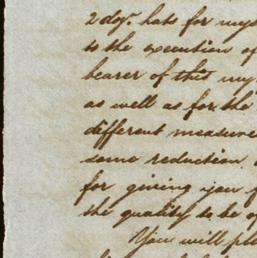 2 dozn. hats for mys
to the execution of
bearer of this my
as well as for the
different measure
some reduction.
for giving you
the quality to be of
You will ple